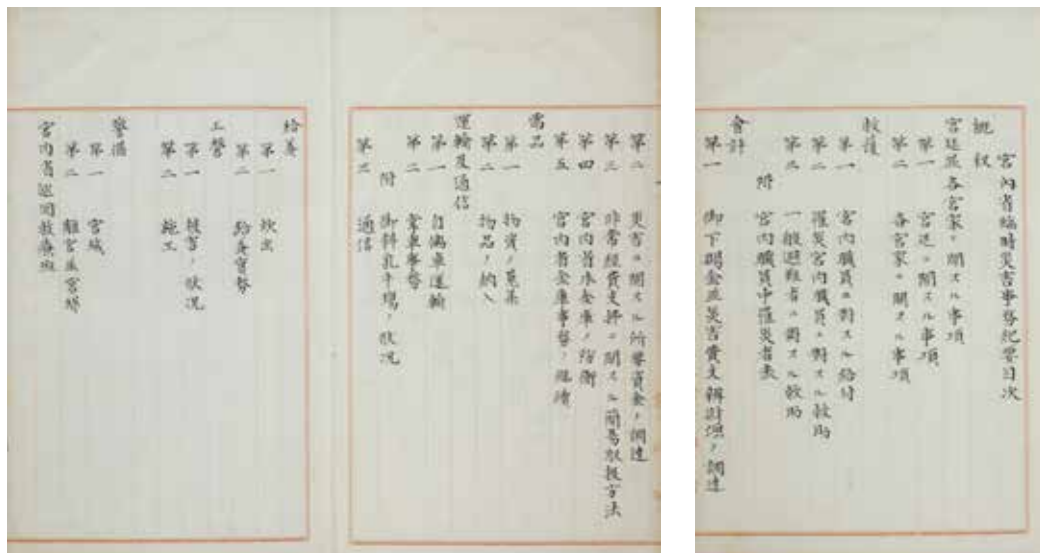 宮内省臨時災害事務紀要目次
概叙
宮廷並各宮家ニ関スル事項
第一 宮廷ニ関スル事項
第二 各宮家ニ関スル事項
救護
第一 宮内職員ニ対スル給付
第二 罹災宮内職員ニ対スル救助
第三 一般避難者ニ対スル救助
附 宮内職員中罹災者表
會計
第一 御下賜金並災害費支辨財源ノ調達
第二 災害ニ関スル所要資金ノ調達
第三 非常経費支拂ニ関スル簡易取扱方法
第四 宮内省本金庫ノ防衛
第五 宮内省金庫事務ノ継續
需品
第一 物資ノ蒐集
第二 物品ノ納入
運輸及通信
第一 自働車運輸
第二 乗車事務
附 御料乳牛場ノ状况
第三 通信
給養
第一 炊出
第二 給養實務
工營
第一 被害ノ状况
第二 施工
警備
第一 宮城
第二 離宮並宮邸
宮内省巡回救療班